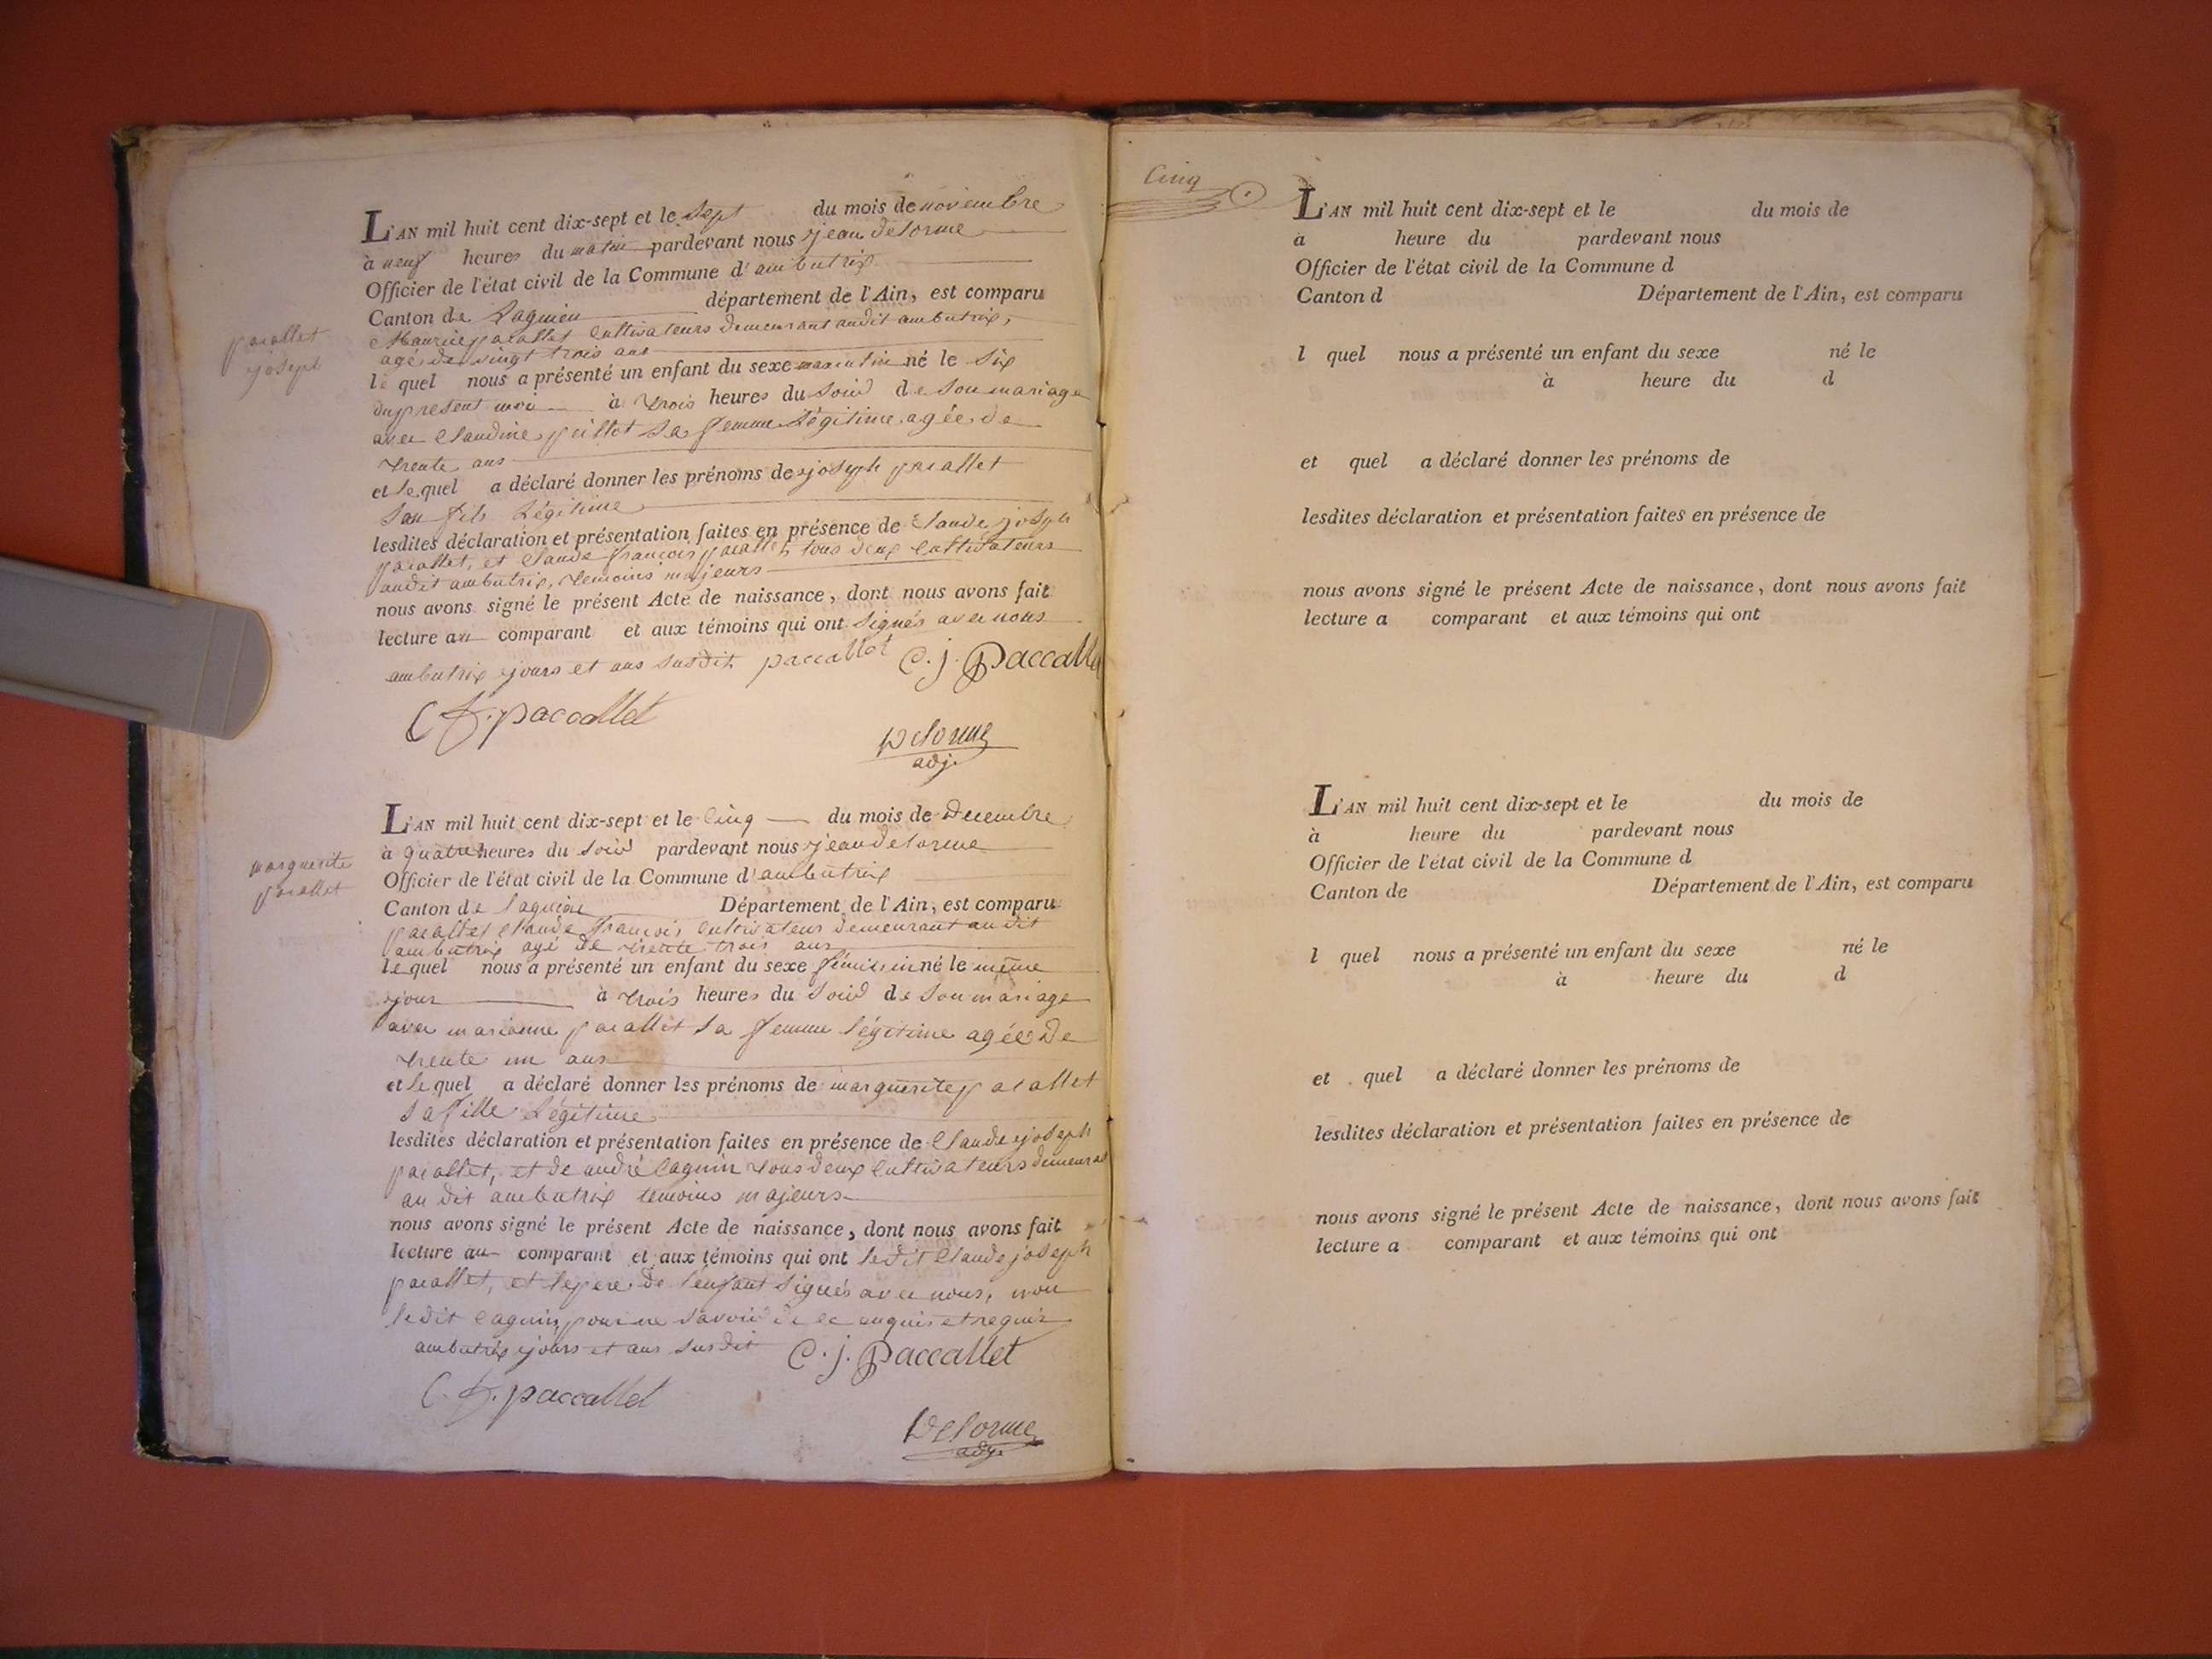 L'AN mil huit cent dix-sept et le sept du mois de novembre
à neuf heures du matin pardevant nous jean delorme
Officier de l'état civil de la Commune d'ambutrix
Canton de Lagnieu département de l'Ain, est comparu
Maurice pacallet cultivateurs demeurant audit ambutrix,
agé de vingt trois ans
le quel nous a présenté un enfant du sexe masculin né le six
du present moi à trois heures du soir de son mariage
avec Claudine peillot sa femme Légitime agée de
trente ans
et le quel a déclaré donner les prénoms de joseph pacallet
son fils Légitime
lesdites déclaration et présentation faites en présence de Claude joseph
pacallet, et Claude françois pacallet tous deux Cultivateurs
audit ambutrix, temoins majeurs
nous avons signé le présent Acte de naissance, dont nous avons fait
lecture au comparant et aux témoins qui ont signés avec nous
ambutrix jours et ans susdit paccallet C. j. Paccallet
C f. paccallet
Delorme
adj.
pacallet
joseph
L'AN mil huit cent dix-sept et le Cinq du mois de Decembre
à quatre heures du soir pardevant nous jean delorme
Officier de l'état civil de la Commune d'ambutrix
Canton de Lagnieu Département de l'Ain, est comparu
pacallet Claude françois Cultivateur demeurant au dit
ambutrix agé de trente trois ans
le quel nous a présenté un enfant du sexe féminin né le même
jour à trois heures du soir de son mariage
avec marianne pacallet sa femme légitime agée de
trente un ans
et le quel a déclaré donner les prénoms de marguerite pacallet
sa fille Légitime
lesdites déclaration et présentation faites en présence de Claude joseph
pacallet, et de andré Cagnin tous deux Cultivateurs demeurant
au dit ambutrix temoins majeurs
nous avons signé le présent Acte de naissance, dont nous avons fait
lecture au comparant et aux témoins qui ont ledit Claude joseph
pacallet, et le pere de l'enfant signés avec nous, non
ledit Cagnin pour ne savoir de ce enquis et requis
ambutrix jours et ans susdit C. j. Paccallet
C. f. paccallet
Delorme
adj.
marguerite
pacallet
Cinq
L'AN mil huit cent dix-sept et le du mois de
à heure du pardevant nous
Officier de l'état civil de la Commune d
Canton d Département de l'Ain, est comparu
l quel nous a présenté un enfant du sexe né le
à heure du d
et quel a déclaré donner les prénoms de
lesdites déclaration et présentation faites en présence de
nous avons signé le présent Acte de naissance, dont nous avons fait
lecture a comparant et aux témoins qui ont
L'AN mil huit cent dix-sept et le du mois de
à heure du pardevant nous
Officier de l'état civil de la Commune d
Canton de Département de l'Ain, est comparu
l quel nous a présenté un enfant du sexe né le
à heure du d
et quel a déclaré donner les prénoms de
lesdites déclaration et présentation faites en présence de
nous avons signé le présent Acte de naissance, dont nous avons fait
lecture a comparant et aux témoins qui ont